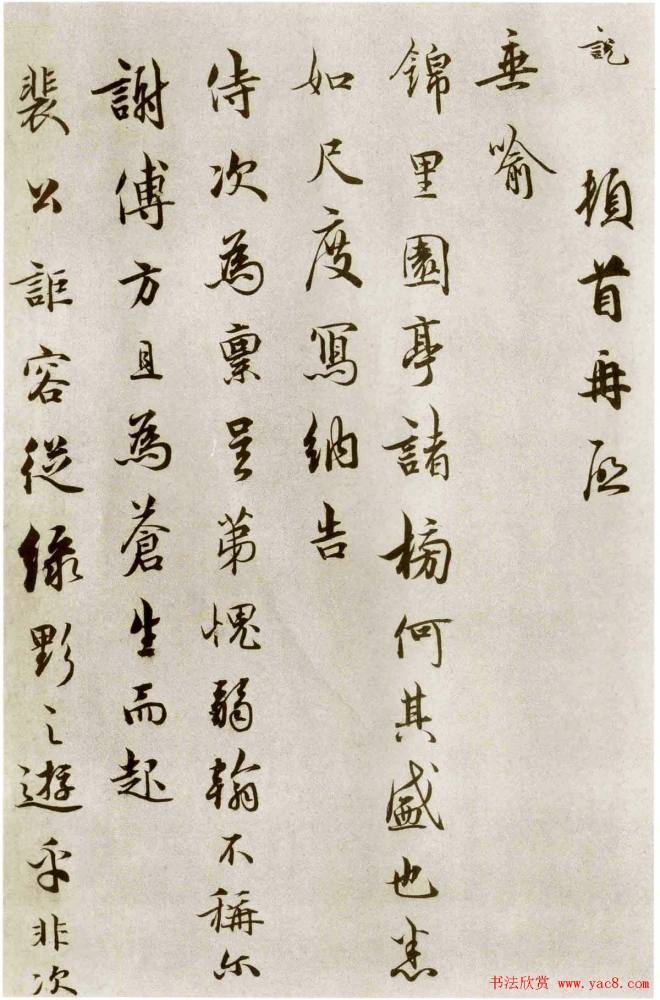 說 頓首再啓
垂喻
錦里園亭諸榜何其盛也悉
如尺度寫納告
侍次為稟呈第愧翰不稱尔
謝傅方且為蒼生而起
裴公詎容從綠野之遊乎非次
书法欣赏 www.yac8.com